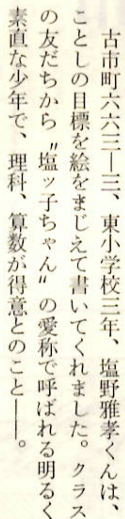 古市町六六三―三、東小学校三年、塩野雅孝くんは、
ことしの目標を絵をまじえて書いてくれました。クラス
の友だちから〝塩ッ子ちゃん〟の愛称で呼ばれる明るく
素直な少年で、理科、算数が得意とのこと――。